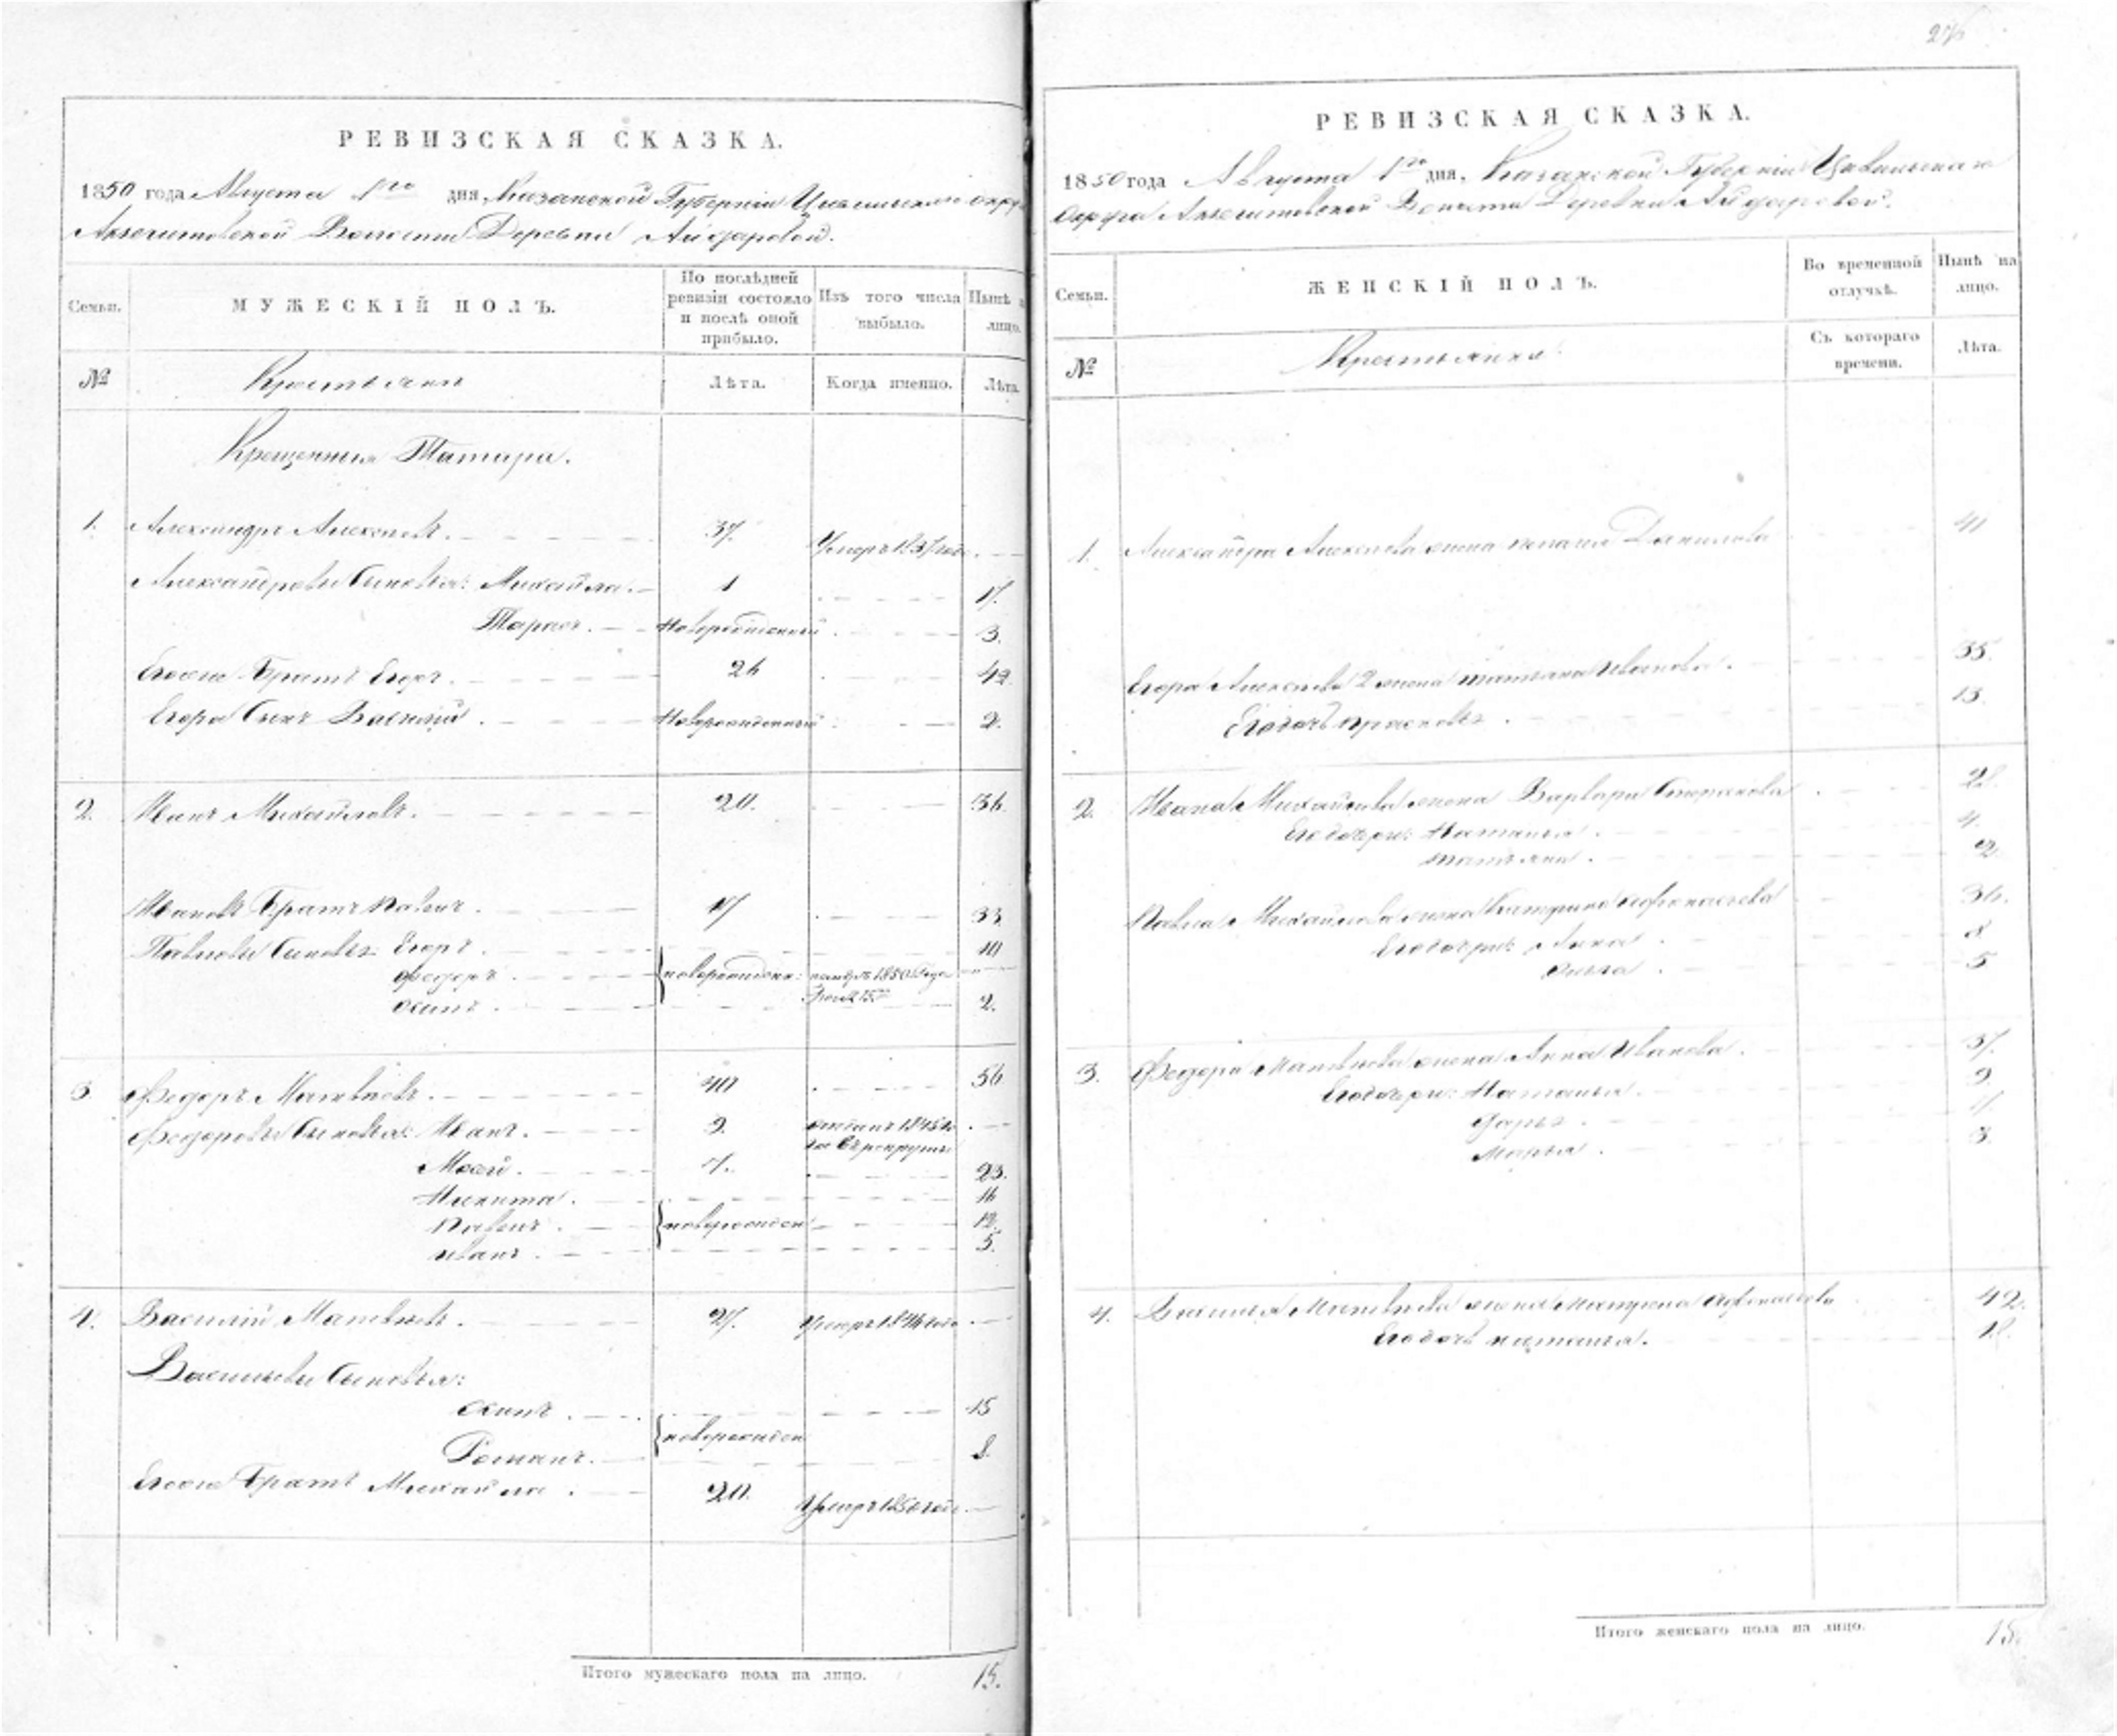 РЕВИЗСКАЯ СКАЗКА.
1850 года Августа 1го дня, Казанской Губернiи Цивильскаго округа
Волости Деревни Айдаровой.
Семьи.
МУЖЕСКIЙ ПОЛЪ.
По послѣдней ревизiи состояло и послѣ оной прибыло.
Изъ того числа выбыло.
Нынѣ на лицо.
№
Крестьяни
Лѣта.
Когда именно.
Лѣта.
Крещенныя Татара.
1. Александръ Алексѣевъ. 37. Умеръ 1837 года.
Александровы Сыновья: Михайла. 1 17.
Тарасъ. Новорожденный 3.
Егоже Братъ Егоръ. 26 42.
Егора Сынъ Василiй. Новорожденный 2.
2. Иванъ Михайловъ. 20. 36.
Ивановъ Братъ Павелъ. 17 33
Павловы Сыновья: Егоръ. 10
Федоръ. новорожден: 1850 Года
Осипъ. 2.
3. Федоръ Матвѣевъ. 40 56
Федоровы Сыновья: Иванъ. 9. отданъ 1845 го
да въ рекруты
Мосей. 7. 23.
Никита. 16
Павелъ. новорожден 12.
Иванъ. 5.
4. Василiй Матвѣевъ. 27. Умеръ 1846 года
Васильевы Сыновья:
Осипъ. 15
новорожден
Романъ. 8.
Егоже Братъ Михайла. 20. Умеръ 1850 года.
Итого мужескаго пола на лицо. 15.
РЕВИЗСКАЯ СКАЗКА.
1850 года Августа 1го дня, Казанской Губернiи Цивильскаго
Округа Волости Деревни Айдаровой.
Семьи.
ЖЕНСКIЙ ПОЛЪ.
Во временной отлучкѣ.
Нынѣ на лицо.
№
Крестьянка
Съ котораго времени.
Лѣта.
1. Александра Алексѣева жена Данилова 41
Егора Алексѣева 2 жена татьяна Иванова. 35.
Его дочь прасковья. 13.
2. Ивана Михайлова жена Варвара Степанова 28.
Его дочери: Наталья. 4.
татьяна. 2
Павла Михайлова жена Катерина Афонасьева 36.
Его дочри: Анна. 8
5
3. Федора Матвѣева жена Анна Иванова. 37.
Его дочри: Наталья. 9
Дарья.
Марья. 3.
4. Василья Матвѣева жена матрена Афонасьева 42.
Его дочь наталья. 18.
Итого женскаго пола на лицо. 15.